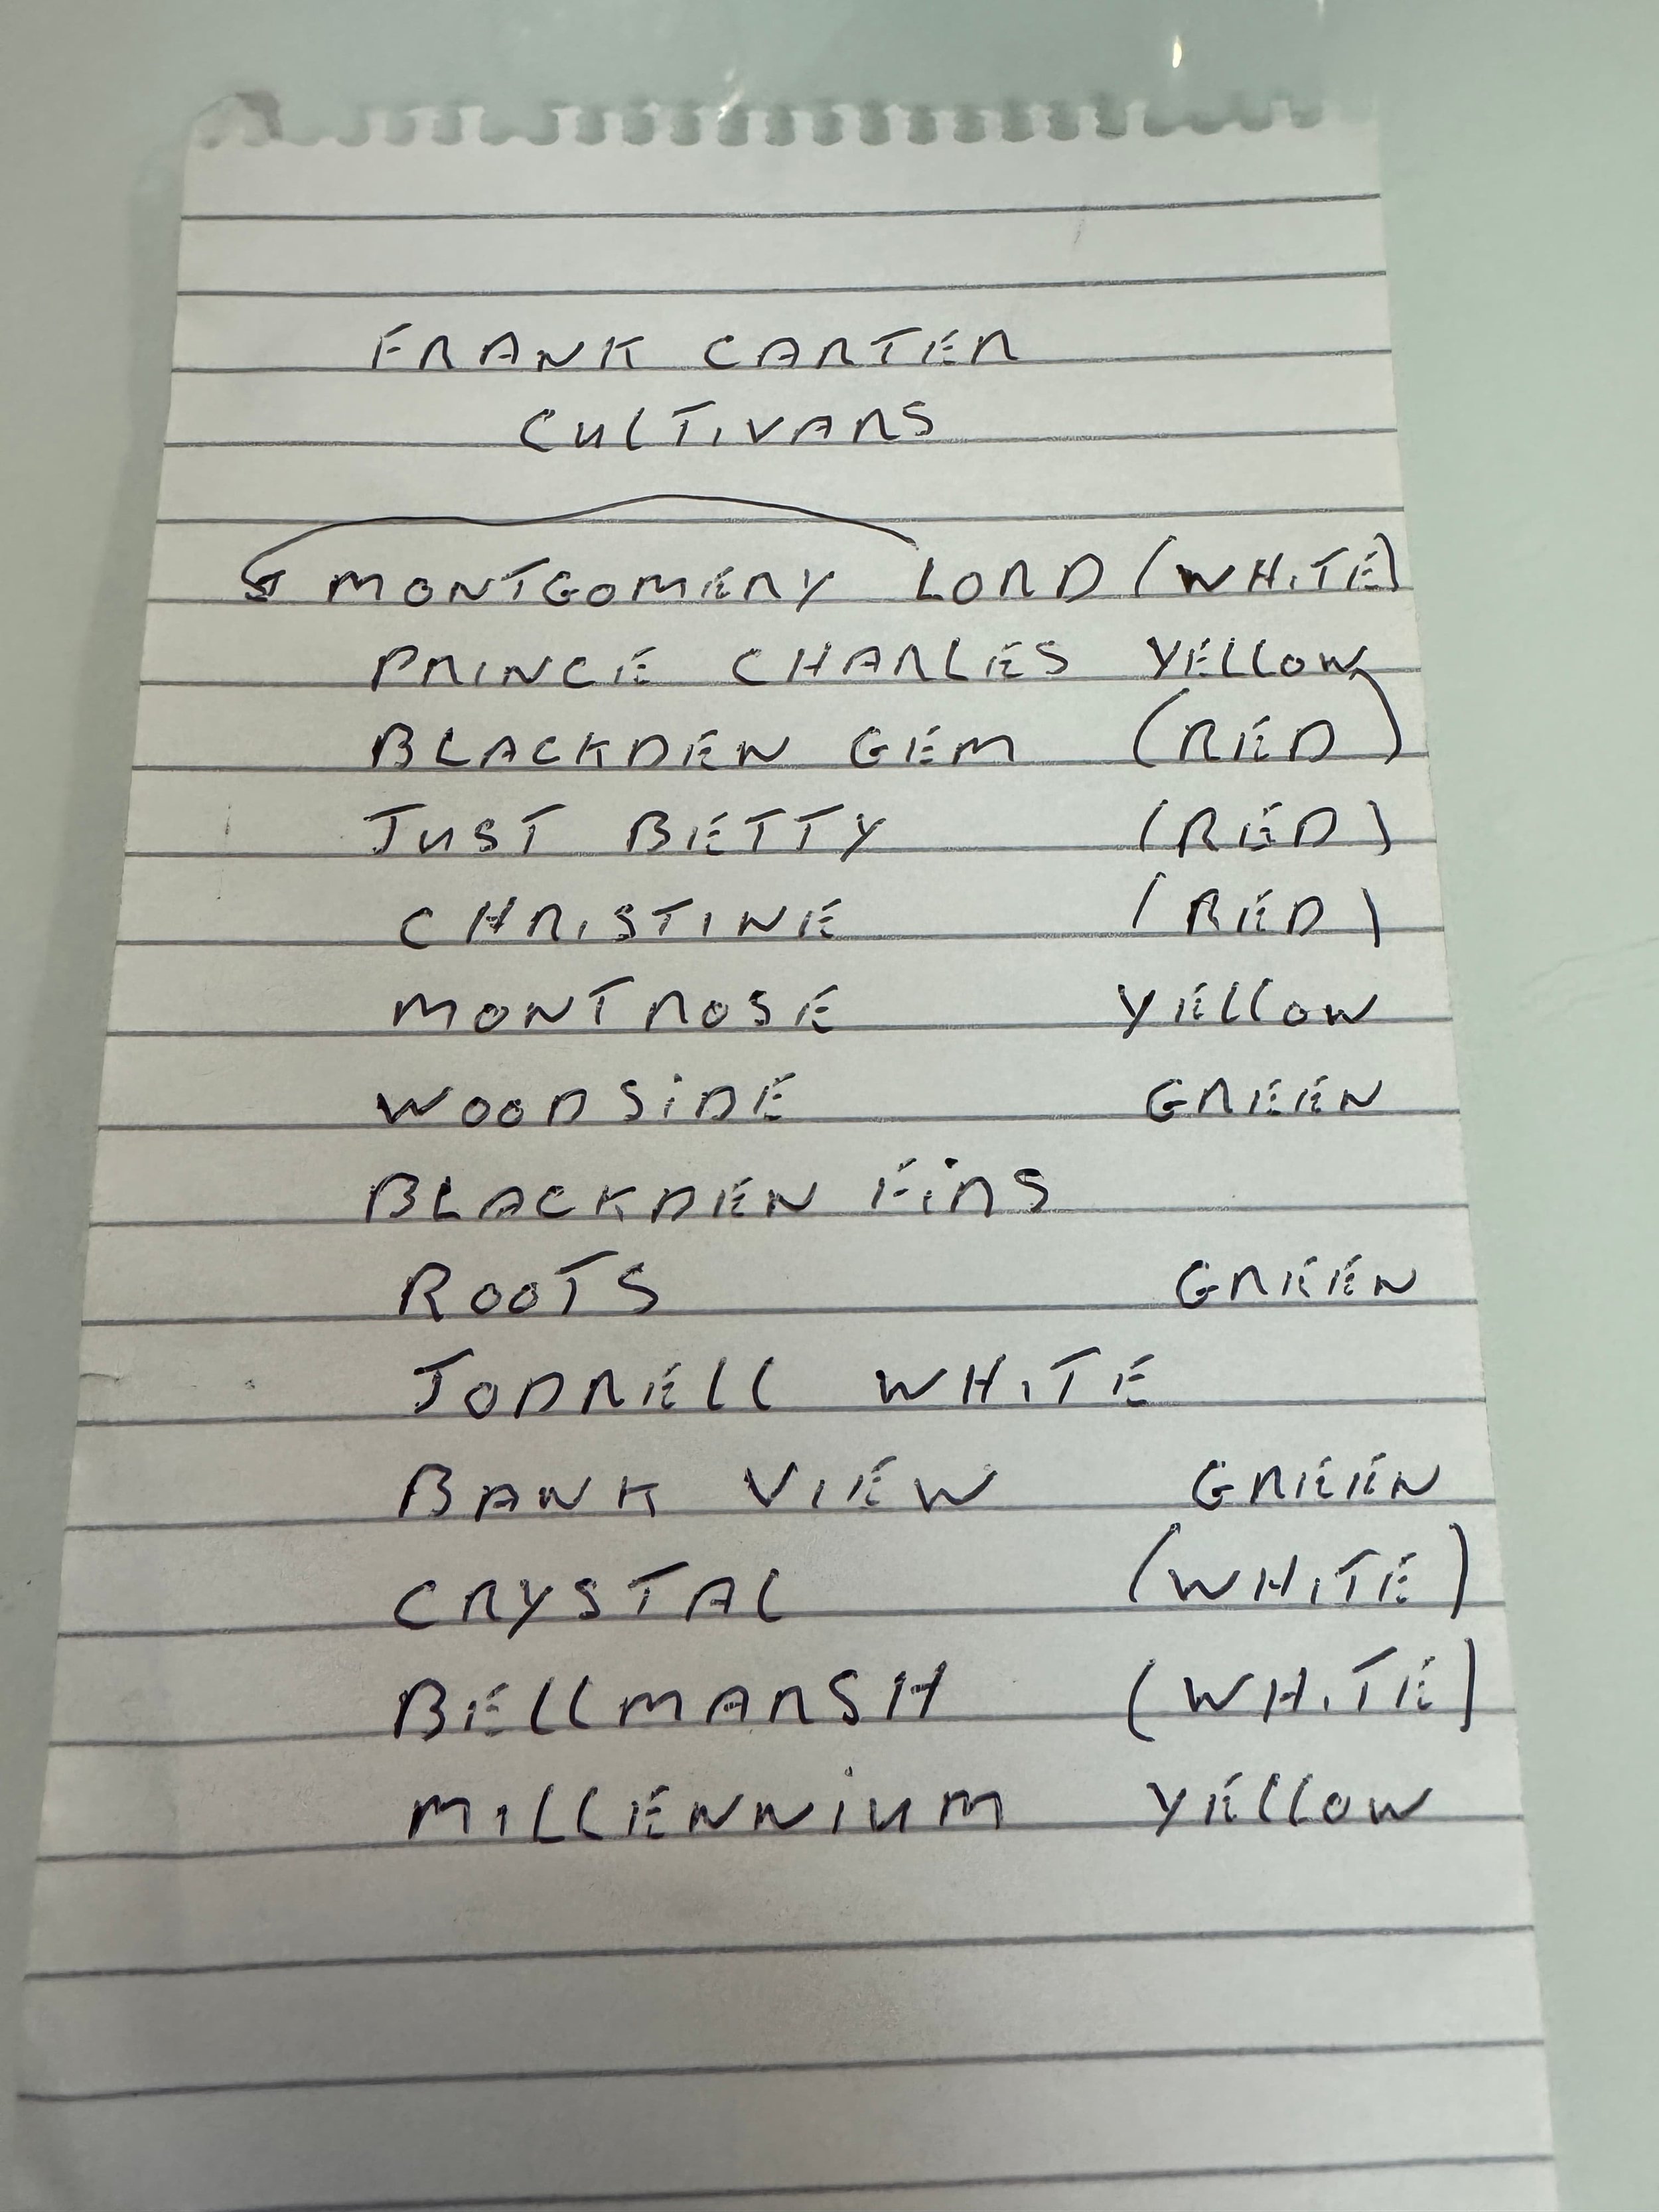 FRANK CARTER
CULTIVARS
MONTGOMERY LORD (WHITE)
PRINCE CHARLES YELLOW
BLACKDEN GEM (RED)
JUST BETTY (RED)
CHRISTINE (RED)
MONTROSE YELLOW
WOODSIDE GREEN
BLACKDEN FIRS
ROOTS GREEN
JODRELL WHITE
BANK VIEW GREEN
CRYSTAL (WHITE)
BELLMARSH (WHITE)
MILLENNIUM YELLOW